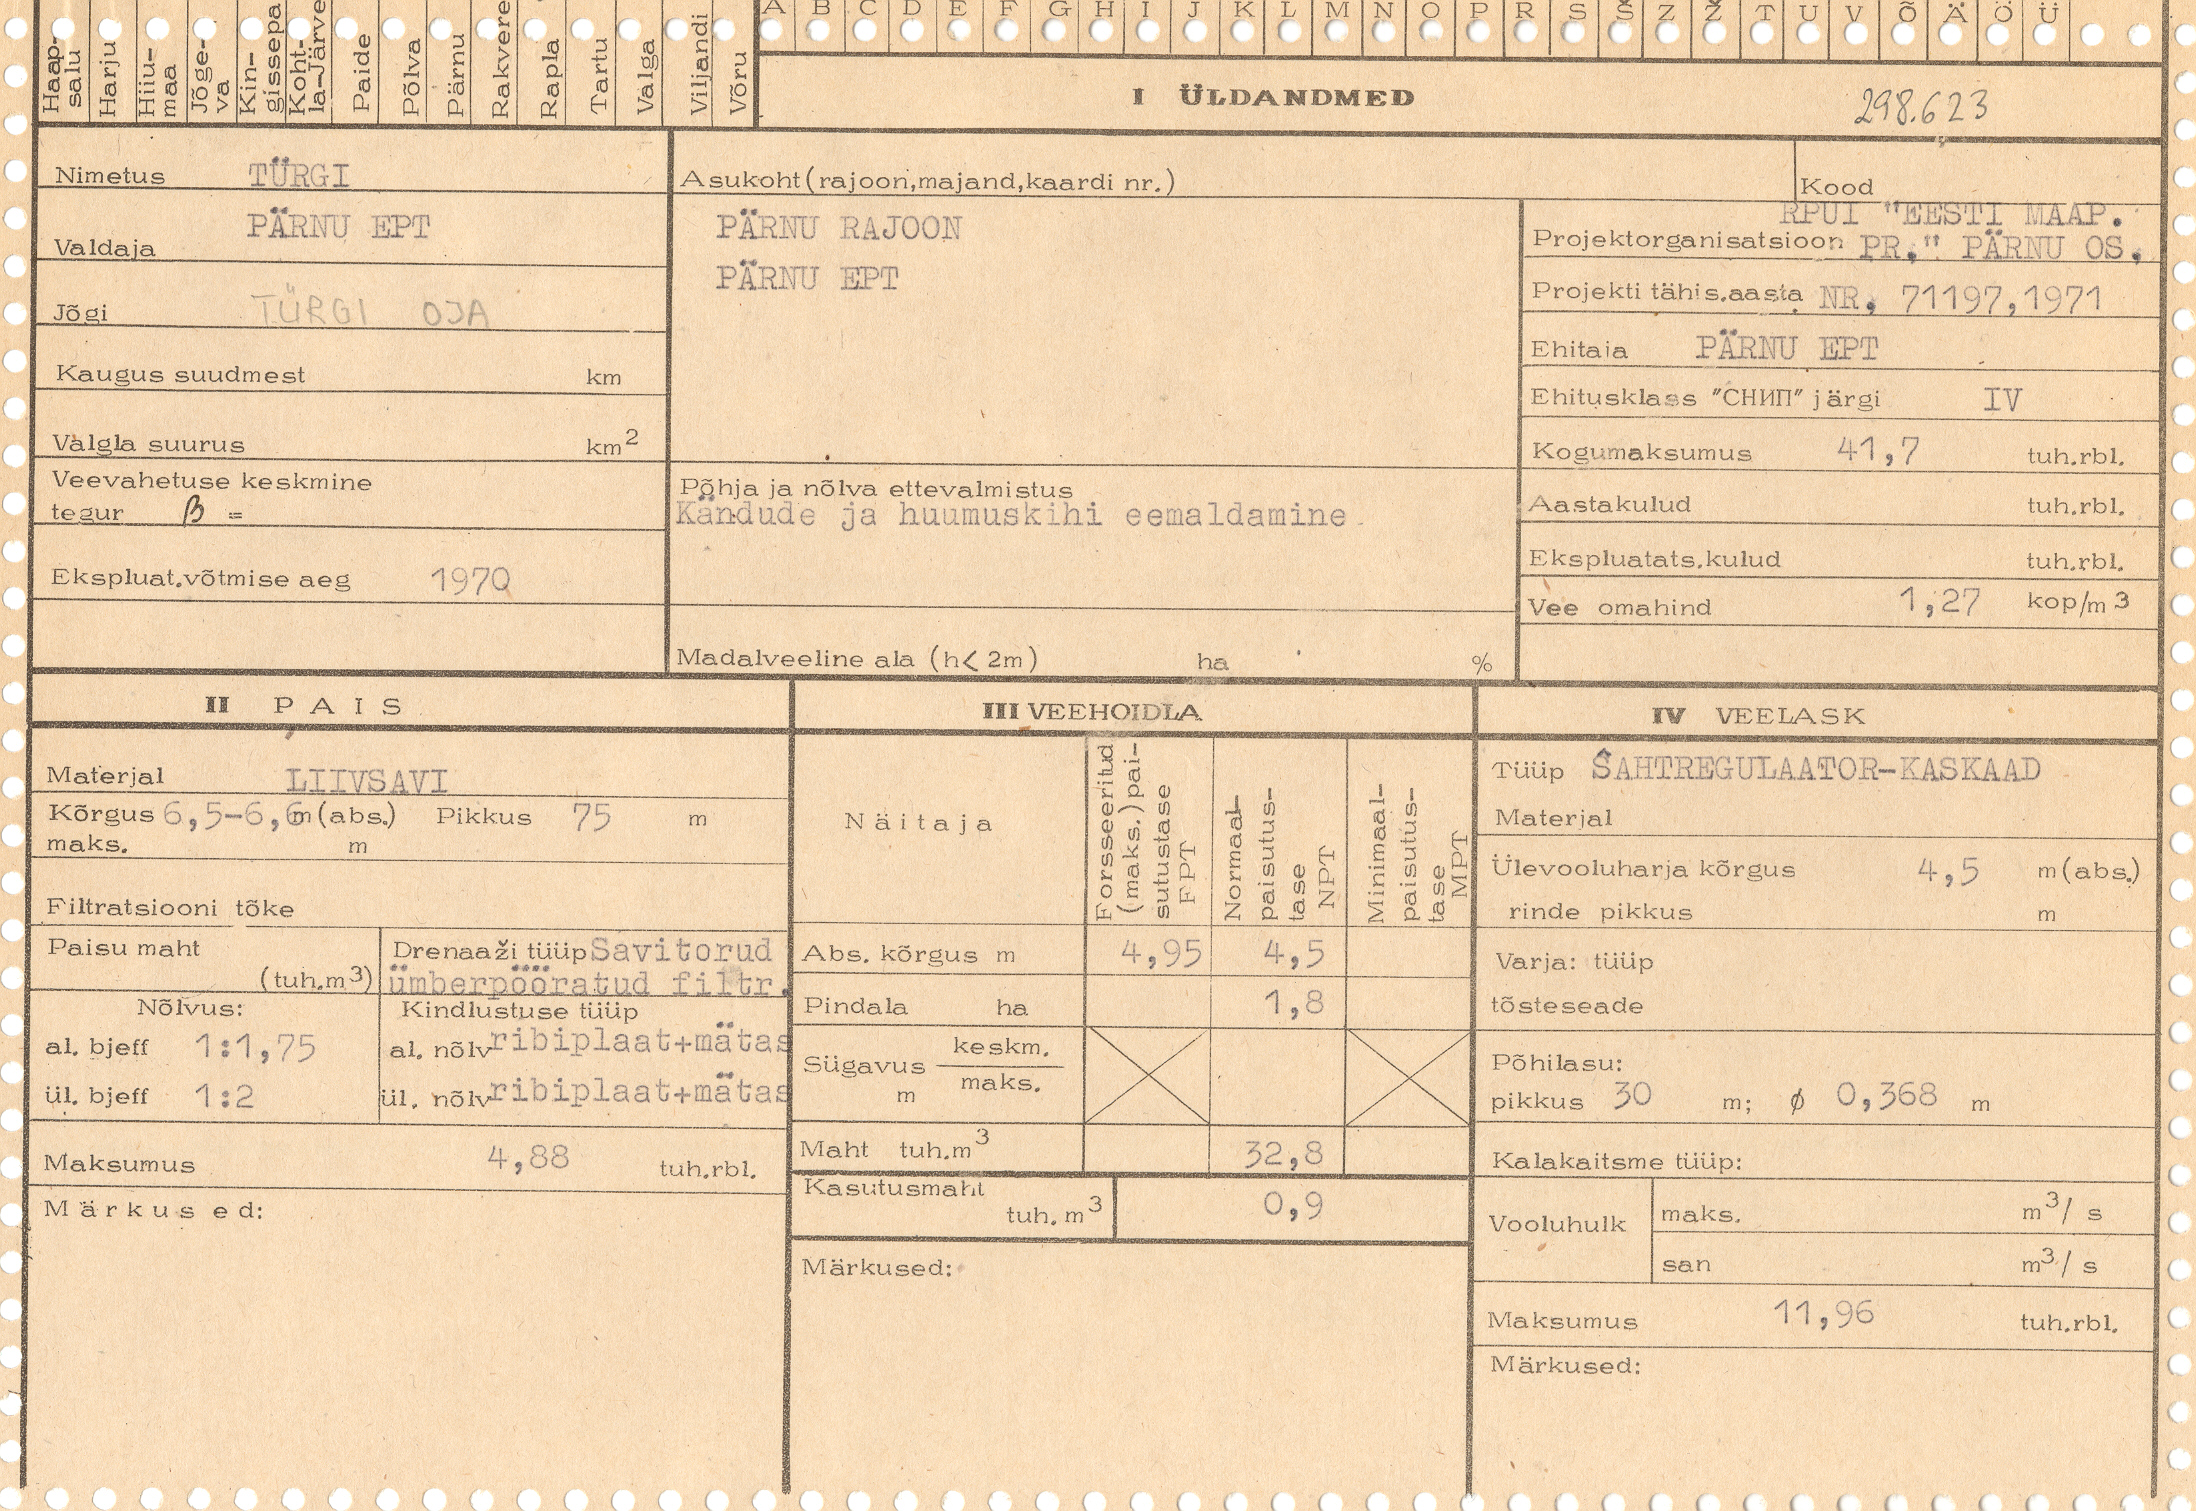 A B C D E F G H I J K L M N O P R S Š Z Ž T U V Õ Ä Ö Ü
Haap-salu Harju Hiiu-maa Jõge-va Kin-gissepa Koht-la-Järve Paide Põlva Pärnu Rakvere Rapla Tartu Valga Viljandi Võru
I ÜLDANDMED
298.623
Nimetus TÜRGI
Asukoht (rajoon,majand,kaardi nr.)
Kood
Valdaja PÄRNU EPT
PÄRNU RAJOON
PÄRNU EPT
Jõgi TÜRGI OJA
Kaugus suudmest km
Valgla suurus km²
Veevahetuse keskmine
tegur β =
Ekspluat.võtmise aeg 1970
Põhja ja nõlva ettevalmistus
Kändude ja huumuskihi eemaldamine
Madalveeline ala (h< 2m) ha %
RPUI "EESTI MAAP.
Projektorganisatsioon PR." PÄRNU OS.
Projekti tähis.aasta NR. 71197,1971
Ehitaia PÄRNU EPT
Ehitusklass "СНИП" järgi IV
Kogumaksumus 41,7 tuh.rbl.
Aastakulud tuh.rbl.
Ekspluatats.kulud tuh.rbl.
Vee omahind 1,27 kop/m³
II PAIS
Materjal LIIVSAVI
Kõrgus 6,5-6,6 m(abs.) Pikkus 75 m
maks. m
Filtratsiooni tõke
Paisu maht
(tuh.m³)
Drenaaži tüüp Savitorud
ümberpööratud filtr.
Nõlvus:
al. bjeff 1:1,75
ül. bjeff 1:2
Kindlustuse tüüp
al. nõlv ribiplaat+mätas
ül. nõlv ribiplaat+mätas
Maksumus 4,88 tuh.rbl.
Märkused:
III VEEHOIDLA
Näitaja
Forsseeritud
(maks.)pai-
sutustase
FPT
Normaal-
paisutus-
tase
NPT
Minimaal-
paisutus-
tase
MPT
Abs. kõrgus m 4,95 4,5
Pindala ha 1,8
Sügavus keskm.
m maks.
Maht tuh.m³ 32,8
Kasutusmaht
tuh.m³ 0,9
Märkused:
IV VEELASK
Tüüp ŠAHTREGULAATOR-KASKAAD
Materjal
Ülevooluharja kõrgus 4,5 m(abs.)
rinde pikkus m
Varja: tüüp
tõsteseade
Põhilasu:
pikkus 30 m; ϕ 0,368 m
Kalakaitsme tüüp:
Vooluhulk maks. m³/ s
san m³/ s
Maksumus 11,96 tuh.rbl.
Märkused: